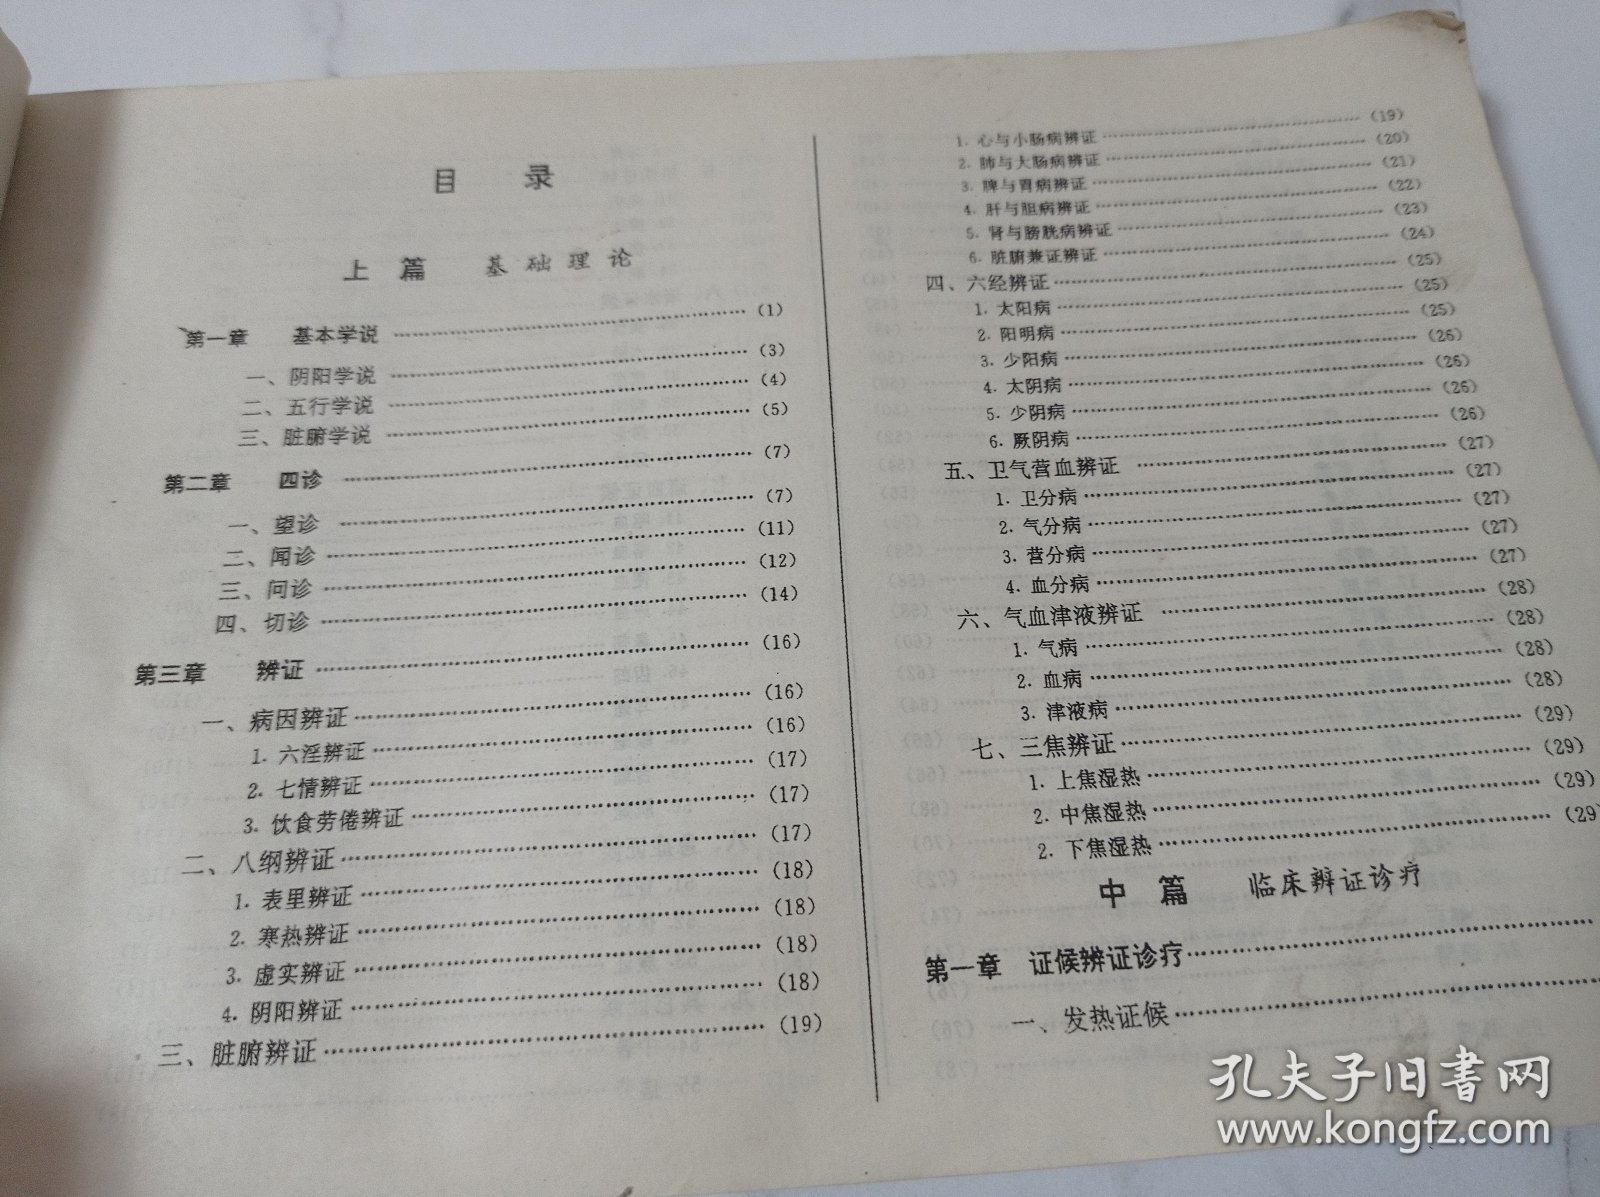 目 录
上 篇 基础理论
第一章 基本学说 …… (1)
一、阴阳学说 …… (3)
二、五行学说 …… (4)
三、脏腑学说 …… (5)
第二章 四诊 …… (7)
一、望诊 …… (7)
二、闻诊 …… (11)
三、问诊 …… (12)
四、切诊 …… (14)
第三章 辨证 …… (16)
一、病因辨证 …… (16)
1. 六淫辨证 …… (16)
2. 七情辨证 …… (17)
3. 饮食劳倦辨证 …… (17)
二、八纲辨证 …… (17)
1. 表里辨证 …… (18)
2. 寒热辨证 …… (18)
3. 虚实辨证 …… (18)
4. 阴阳辨证 …… (18)
三、脏腑辨证 …… (19)
1. 心与小肠病辨证 …… (19)
2. 肺与大肠病辨证 …… (20)
3. 脾与胃病辨证 …… (21)
4. 肝与胆病辨证 …… (22)
5. 肾与膀胱病辨证 …… (23)
6. 脏腑兼证辨证 …… (24)
四、六经辨证 …… (25)
1. 太阳病 …… (25)
2. 阳明病 …… (25)
3. 少阳病 …… (26)
4. 太阴病 …… (26)
5. 少阴病 …… (26)
6. 厥阴病 …… (26)
五、卫气营血辨证 …… (27)
1. 卫分病 …… (27)
2. 气分病 …… (27)
3. 营分病 …… (27)
4. 血分病 …… (27)
六、气血津液辨证 …… (28)
1. 气病 …… (28)
2. 血病 …… (28)
3. 津液病 …… (28)
七、三焦辨证 …… (29)
1. 上焦湿热 …… (29)
2. 中焦湿热 …… (29)
2. 下焦湿热 …… (29)
中 篇 临床辨证诊疗
第一章 证候辨证诊疗 ……
一、发热证候 ……
孔夫子旧书网
www.kongfz.com